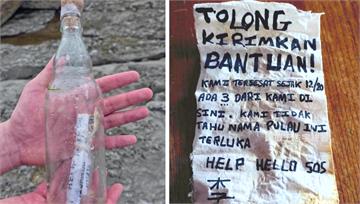 TOLONG
KIRIMKAN
BANTUAN!
KAMI TERSESAT SEJAK 12/20
ADA 3 DARI KAMI DI
SINI. KAMI TIDAK
TAHU NAMA PULAU INI
TERLUKA
HELP HELLO SOS
李